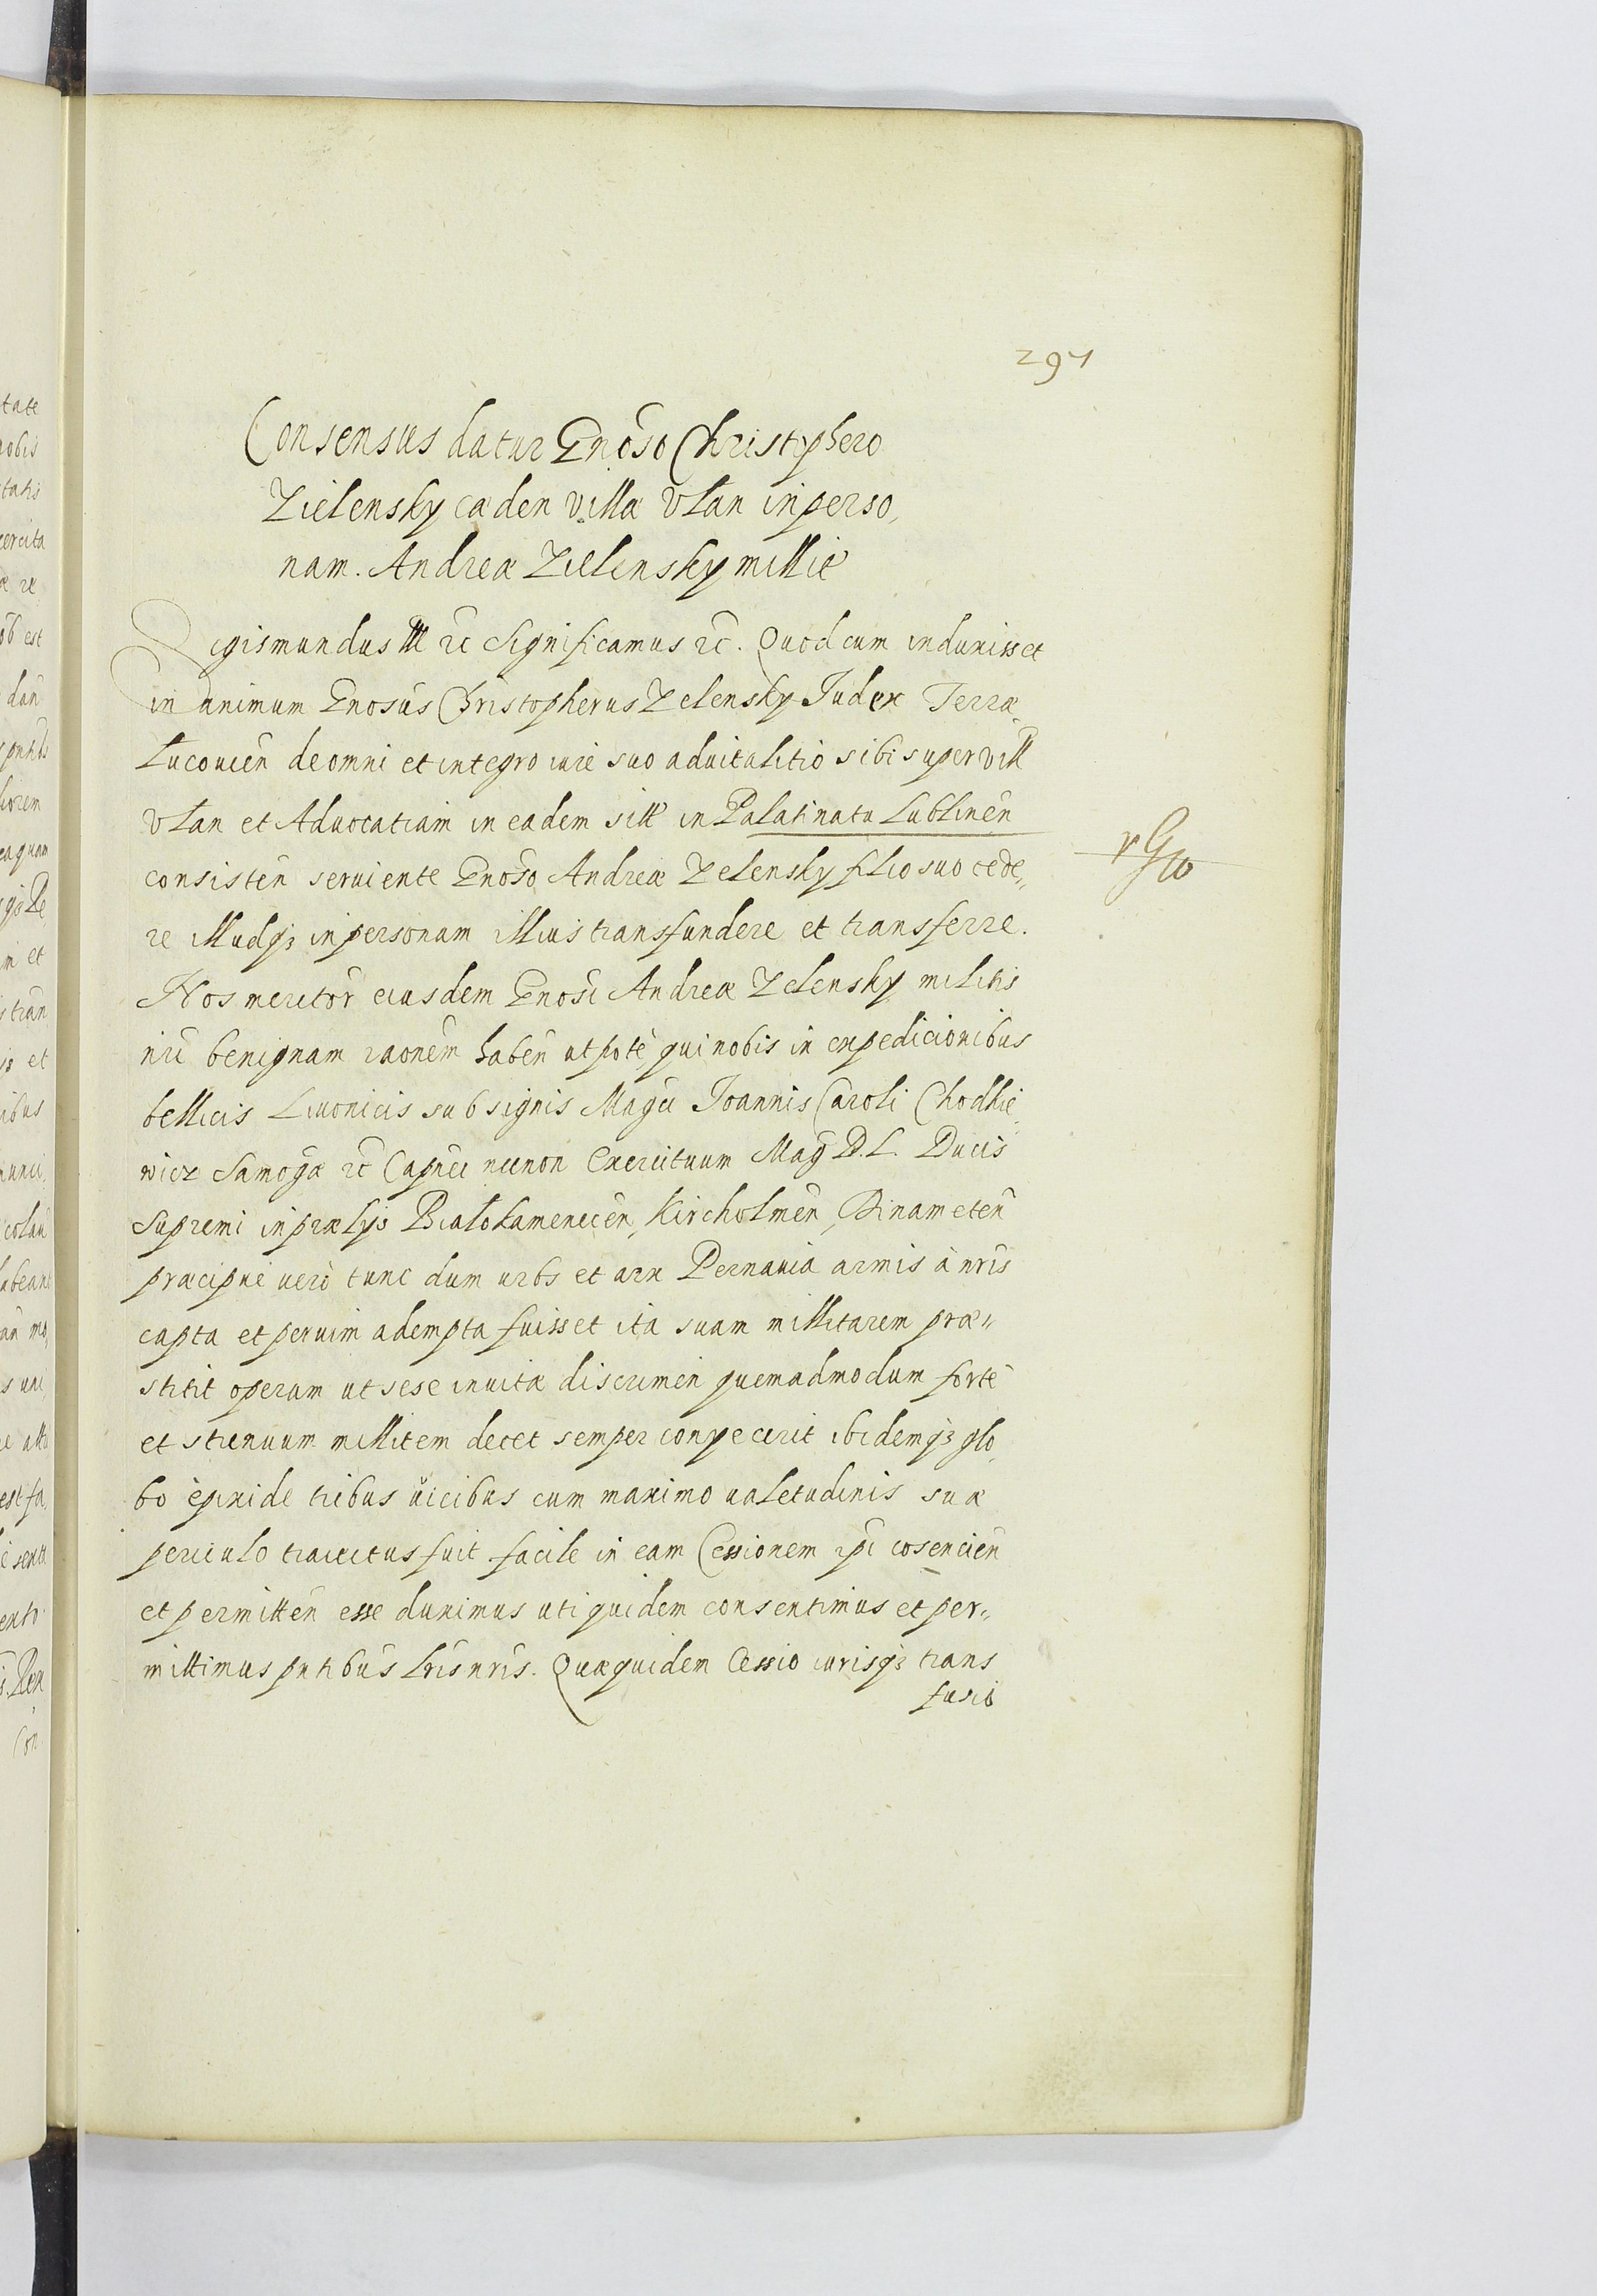 294
Consensus datur Gnoso Christophero
Zielensky cæden villæ Vlan in perso,
nam. Andreæ Zielensky millit
Sigismundus III rc Significamus rc. Quod cum induxisset
in animum Gnosus Christopherus Zelensky Judex Terræ
Lucouien de omni et integro iure suo aduitalitio sibi super vill
Vlan et Aduocatiam in eadem sitt in Palatinatu Lublinen
consisten seruiente Gnoso Andreæ Zelensky filio suo cede„
re illudqꝫ in personam illius transfundere et transferre.
Nos meritor eiusdem Gnosi Andreæ Zelensky militis
nri benignam raonem haben utpote qui nobis in expedicionibus
bellicis Liuonicis sub signis Magci Joannis Caroli Chodkie
wicz Samogæ rc Capnei necnon Exercituum Mag D. L. Ducis
Supremi in prælys Bialokamenecen, Kircholmen, Dinameten
præcipue uero tunc dum urbs et arx Pernauia armis à nris
capta et per uim adempta fuisset ita suam millitarem præ„
stitit operam ut sese in uitæ discrimen quemadmodum forte
et strenuum millitem decet semper coniecerit ibidemqꝫ glo,
bo è pixide tribus uicibus cum maximo ualetudinis suæ
periculo traiectus fuit facile in eam Cessionem ipi cosencien
et permitten esse duximus uti quidem consentimus et per„
mittimus pntibus Lris nris. Quæquidem Cessio iurisqꝫ trans
fusio